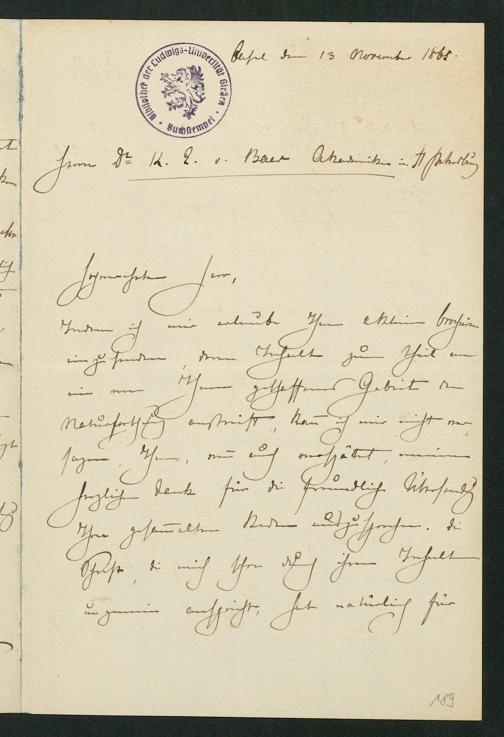 Bibliothek der Ludwigs-Universität Gießen
Buchstempel
Basel den 13 November 1865.
Herrn Dr. K. E. v. Baer Akademiker in St Petersburg
Hochverehrter Herr,
Indem ich mir erlaube Ihnen kleine
einzusenden, deren Inhalt zum Theil an
ein von Ihnen geschaffenes Gebiet der
Naturforschung anstreift, kann ich mir nicht ver-
sagen, Ihnen, wenn auch verspätet, meinen
herzlichen Dank für die freundliche Übersendung
Ihrer gesammelten Reden auszusprechen. Die
Schrift, die mich schon durch ihren Inhalt
ungemein anspricht, hat natürlich für
189